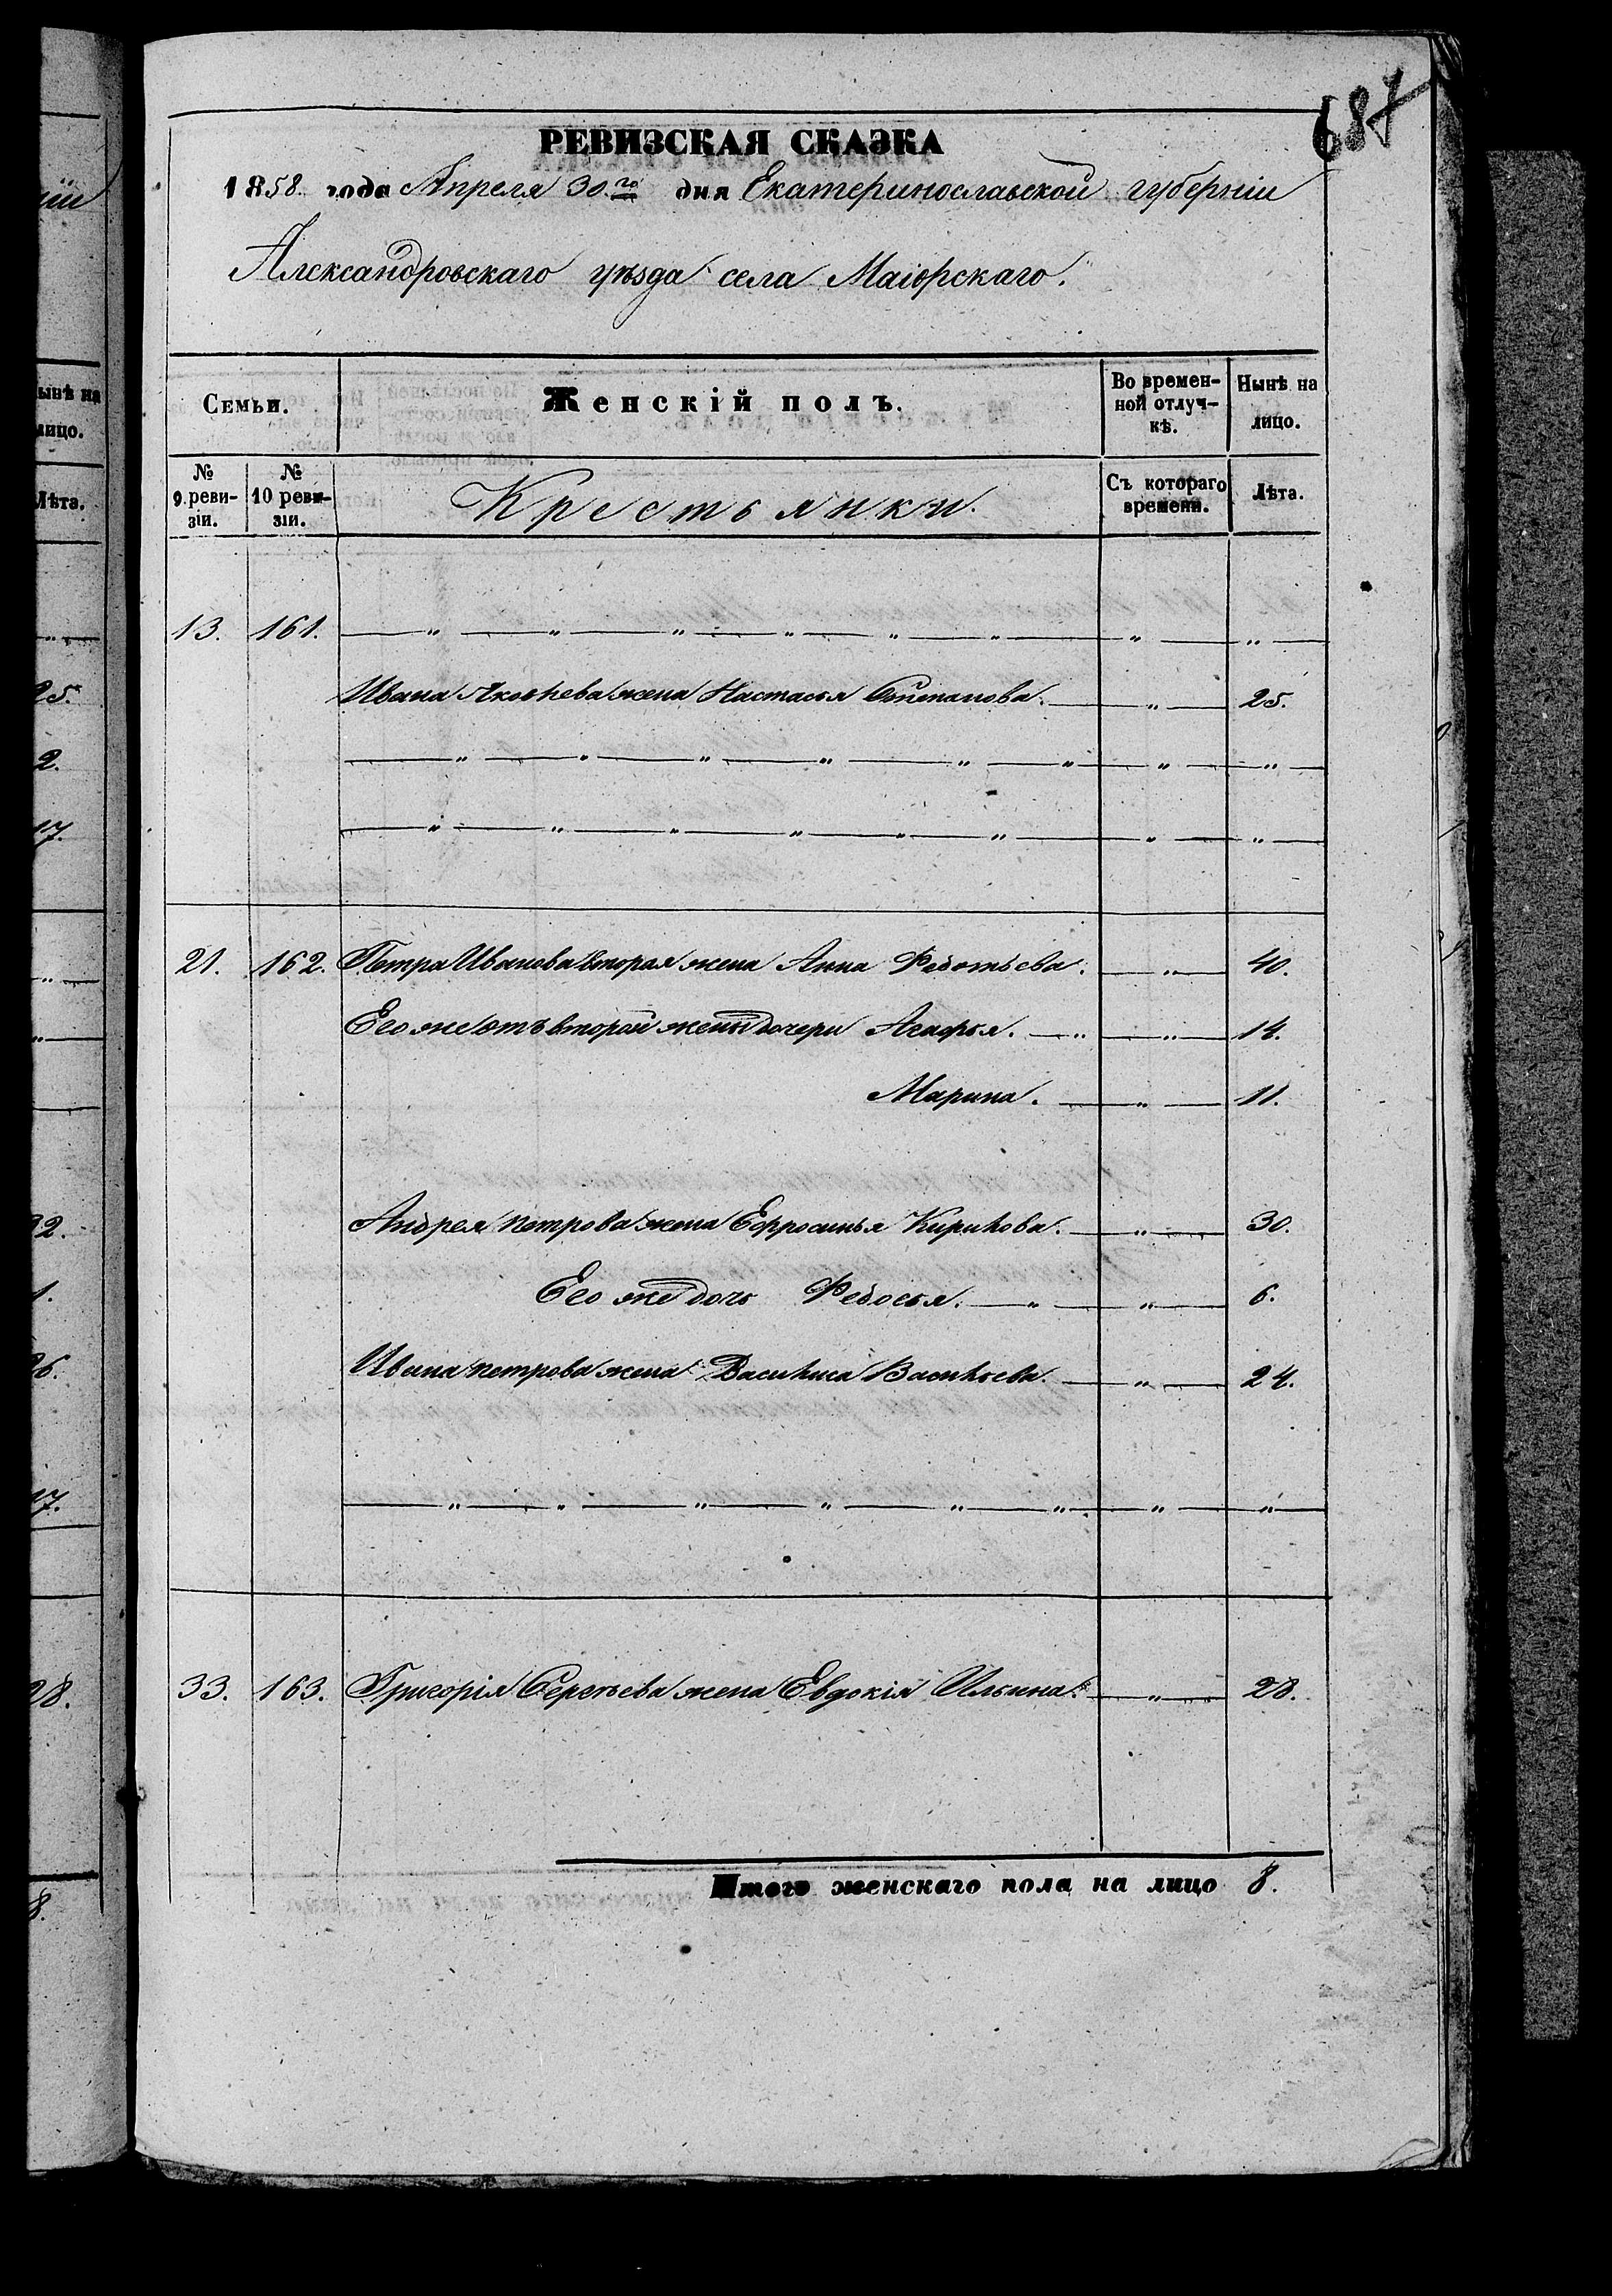 687
РЕВИЗСКАЯ СКАЗКА
1858. года Апреля 30.го дня Екатеринославской губерніи
Александровскаго уѣзда села Маіорскаго.
Семьи.
Женскій полъ.
Во времен-
ной отлуч-
кѣ.
Нынѣ на
лицо.
№
9.реви-
зіи.
№
10 реви-
зіи.
Крестьянки.
Съ котораго
времени.
Лѣта.
13. 161. — „ — „ — „ — „ — „ — „ — „ — „ —
Ивана Яковлева жена Настасья Степанова. — „ — 25.
— „ — „ — „ — „ — „ — „ — „ — „ —
— „ — „ — „ — „ — „ — „ — „ — „
21. 162. Петра Иванова вторая жена Анна Федотьева. — „ — 40.
Его же отъ второй жены дочери Агафья. — „ — „ — 14.
Марина. — „ — 11.
Андрея Петрова жена Ефросинья Кирилова. — „ — 30.
Его же дочь Федосья. — „ — „ — 6.
Ивана Петрова жена Василиса Васильева. — „ — 24.
— „ — „ — „ — „ — „ — „ — „ — „ —
33. 163. Григорія Сергѣева жена Евдокія Ильина. — „ — 28.
Итого женскаго пола на лицо 8.
ніи
ынѣ на
лицо.
Лѣта.
25.
2.
17.
32.
1.
26.
17.
28.
8.